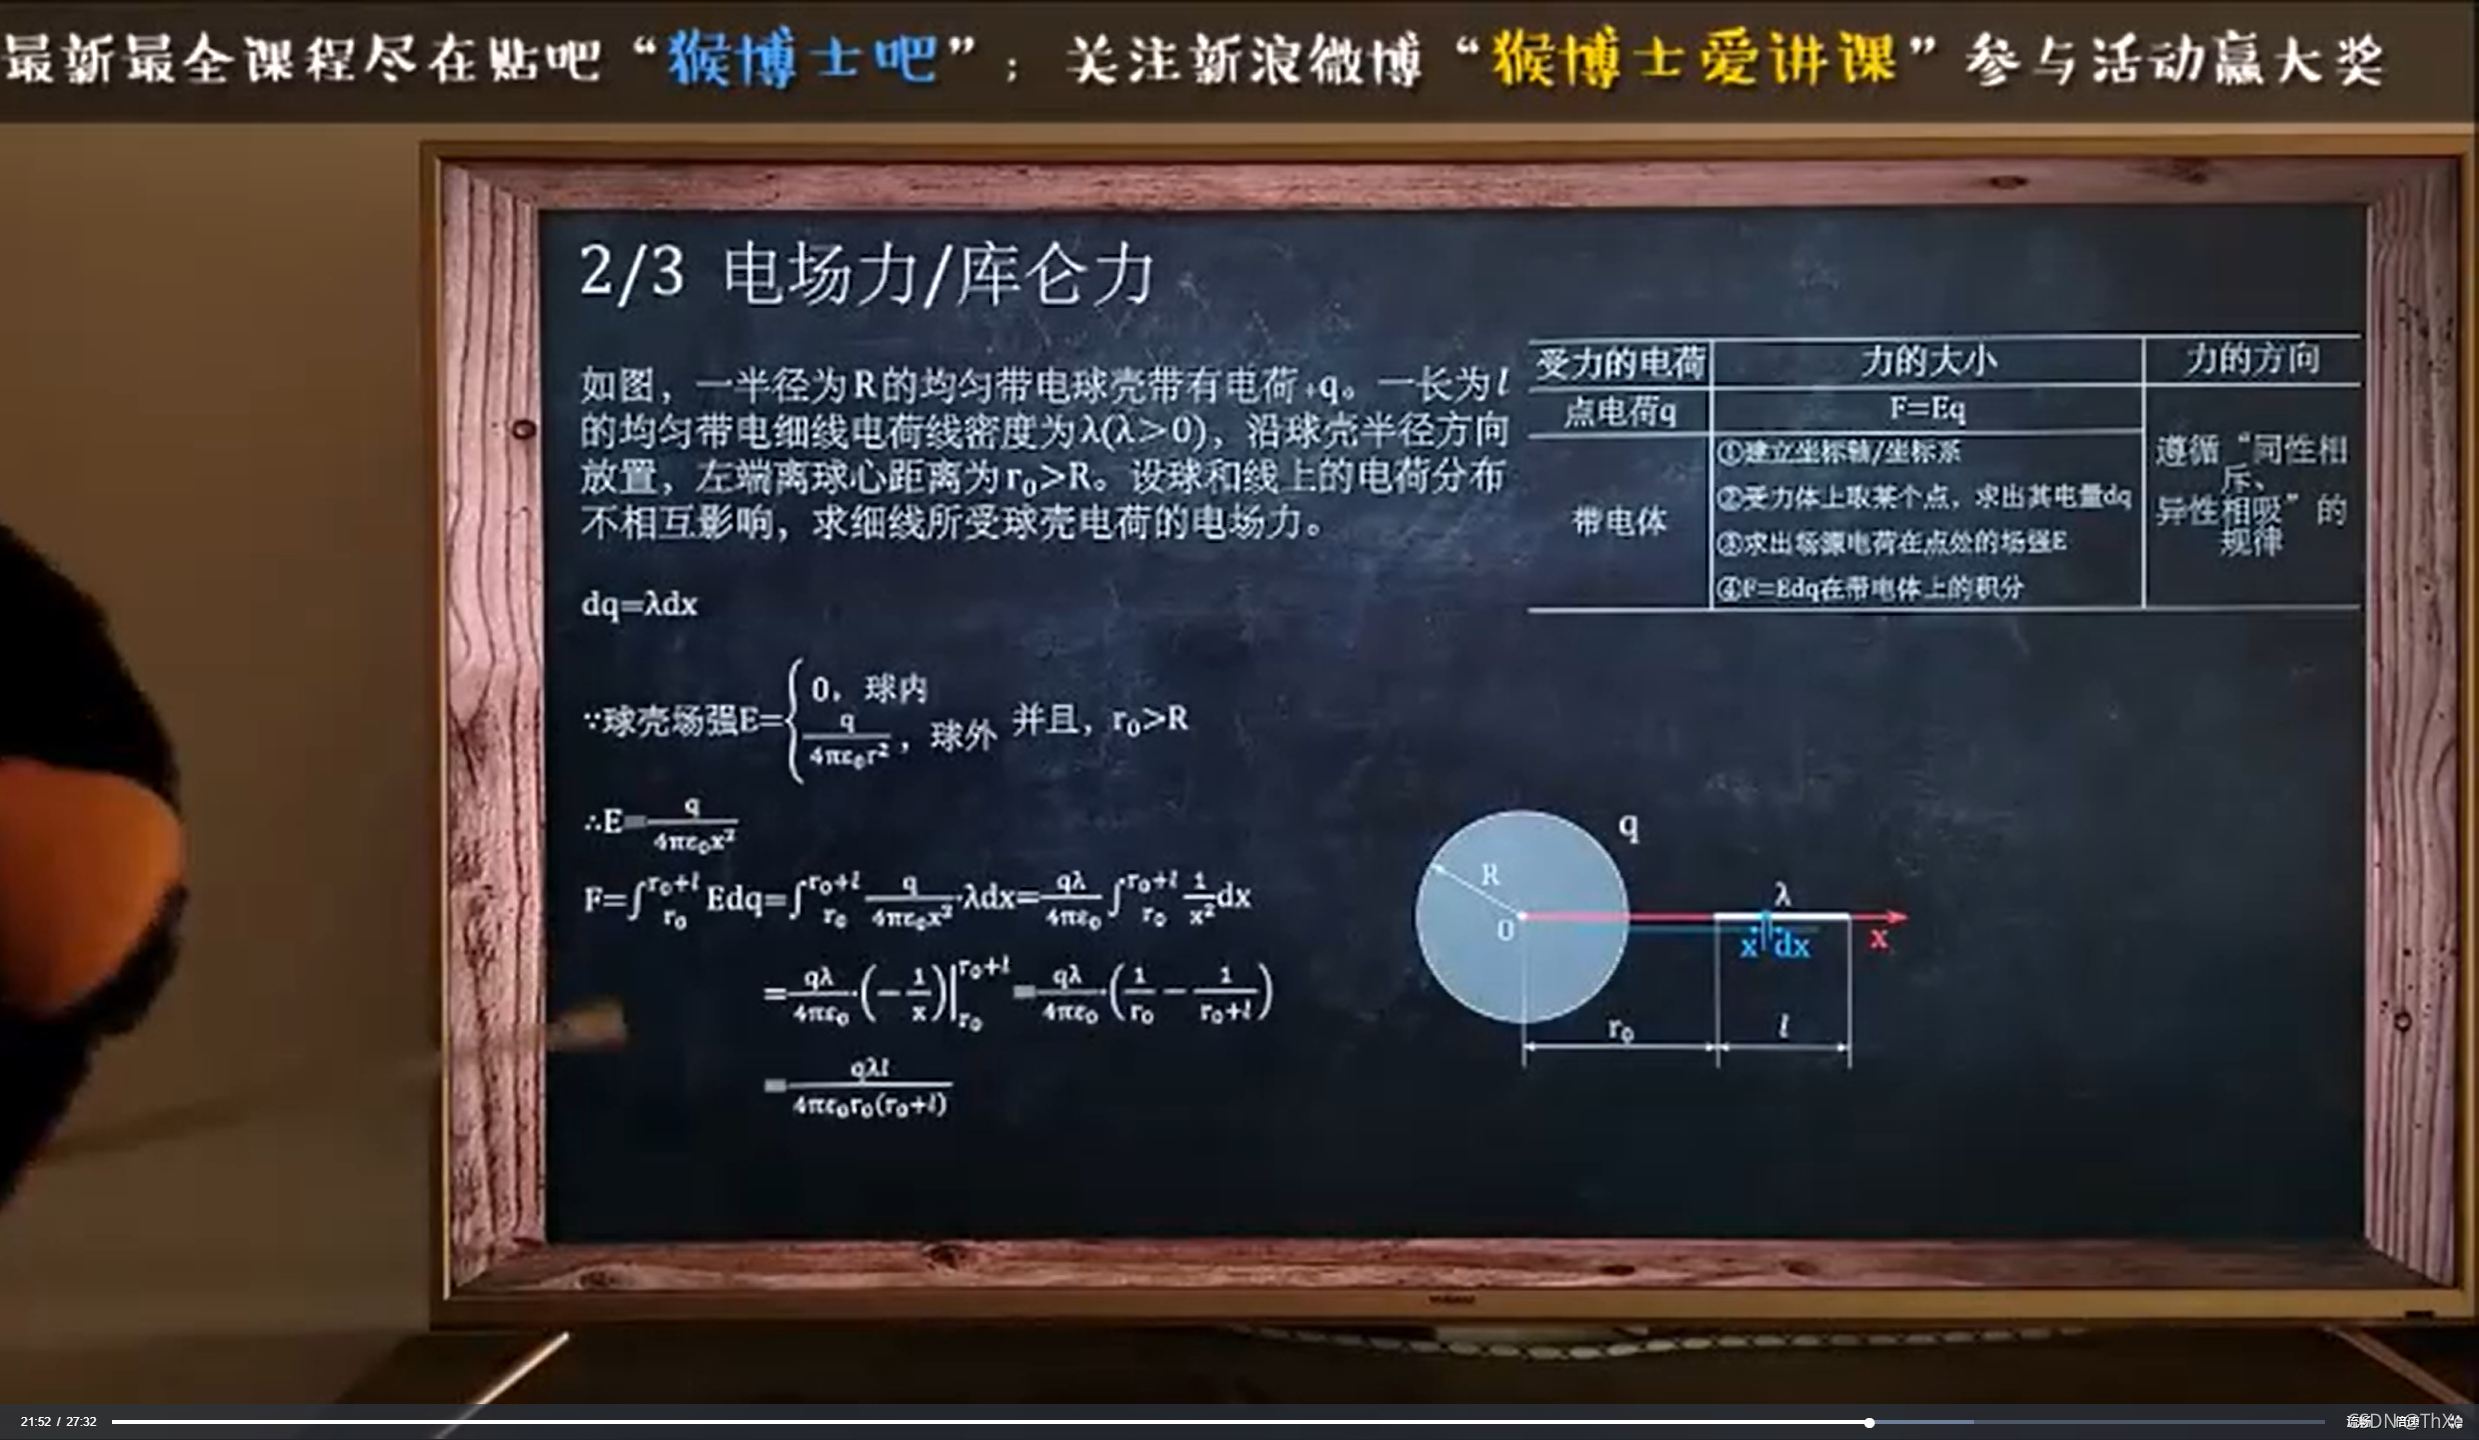 最新最全课程尽在贴吧“猴博士吧”；关注新浪微博“猴博士爱讲课”参与活动赢大奖
2/3 电场力/库仑力
如图，一半径为R的均匀带电球壳带有电荷+q。一长为l
的均匀带电细线电荷线密度为λ(λ>0)，沿球壳半径方向
放置，左端离球心距离为r₀>R。设球和线上的电荷分布
不相互影响，求细线所受球壳电荷的电场力。
受力的电荷 力的大小 力的方向
点电荷q F=Eq
带电体
①建立坐标轴/坐标系
②受力体上取某个点，求出其电量dq
③求出场源电荷在点处的场强E
④F=Edq在带电体上的积分
遵循“同性相
斥、
异性相吸”的
规律
dq=λdx
∵球壳场强E={0，球内 q/4πε₀r²，球外 并且，r₀>R
∴E=q/4πε₀x²
F=∫r₀^r₀+l Edq=∫r₀^r₀+l q/4πε₀x²·λdx=qλ/4πε₀ ∫r₀^r₀+l 1/x² dx
=qλ/4πε₀·(−1/x)|r₀^r₀+l=qλ/4πε₀·(1/r₀−1/r₀+l)
=qλl/4πε₀r₀(r₀+l)
q
R
λ
0
x dx
x
r₀
l
21:52 / 27:32
倍速
CSDN @ThX